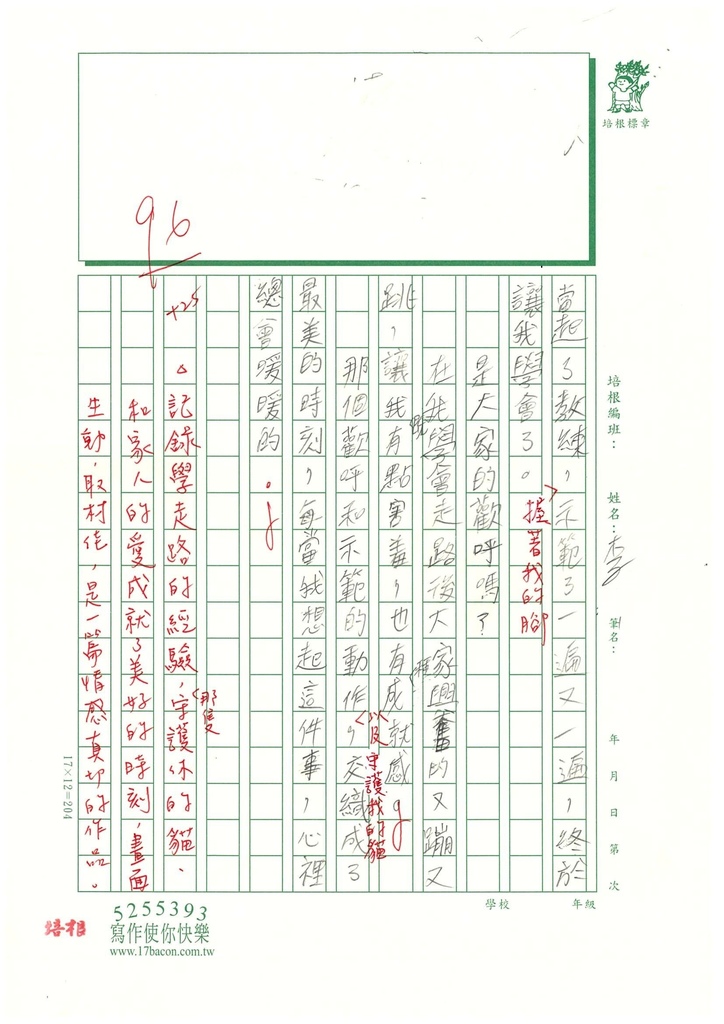 培根標章
培根編班：
姓名：李
筆名：
年 月 日 第 次
學校
年級
當起了教練，示範了一遍又一遍，終於
讓我學會了。
握著我的腳
是大家的歡呼嗎？
在我學會走路後大家興奮的又蹦又
跳，讓我有點害羞，也有成就感。
那個歡呼和示範的動作，交織成了
以及守護我的貓
最美的時刻，每當我想起這件事，心裡
總會暖暖的。
96
+25
記錄學走路的經驗，守護休的貓、
那隻
和家人的愛成就了美好的時刻，畫面
生動，取材佳，是一篇情感真切的作品。
17×12=204
培根
5255393
寫作使你快樂
www.17bacon.com.tw